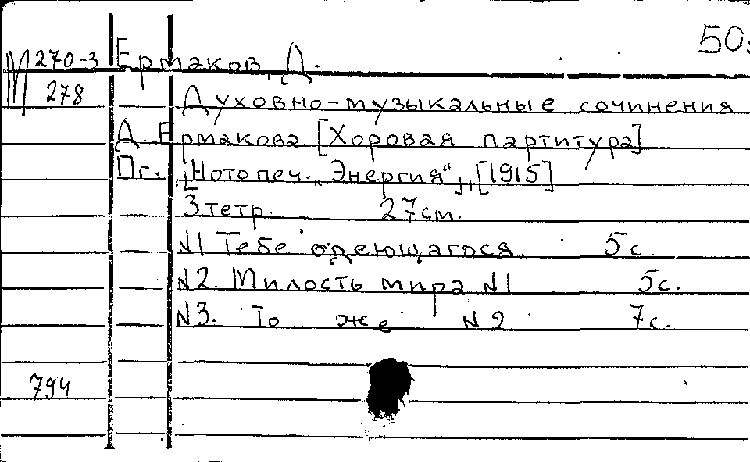 50
М 270-3 Ермаков, Д.
278
Духовно-музыкальные сочинения
Д. Ермакова [Хоровая партитура]
Пг., [Нотопеч. „Энергия"], [1915]
3 тетр. 27 см.
N1 Тебе одеющагося 5 с.
N2 Милость мира N1 5 с.
N3. То же N2 7 с.
794